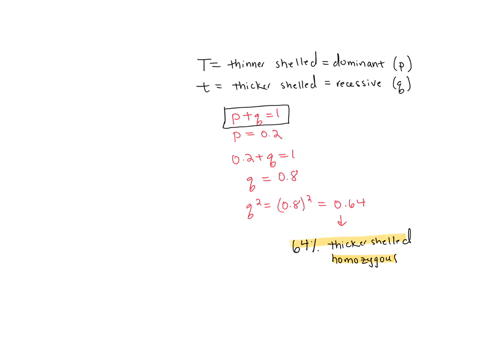 T = thinner shelled = dominant (p)
t = thicker shelled = recessive (q)
p + q = 1
p = 0.2
0.2 + q = 1
q = 0.8
q² = (0.8)² = 0.64
↓
64% thicker shelled
homozygous